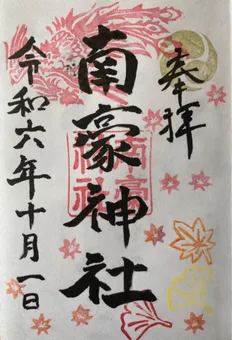 奉拝
南豪神社
令和六年十月一日